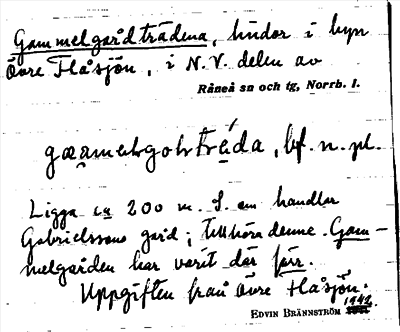 Gammelgårdträdena, lindor i byn
Övre Flåsjön, i N.V. delen av
Råneå sn och tg, Norrb. l.
bf. n. pl.
Ligga ca 200 m. S. om handlar
Gabrielssons gård; tillhöra denne. Gam-
melgården har varit där förr.
Uppgiften från Övre Flåsjön.
EDVIN BRÄNNSTRÖM 1942